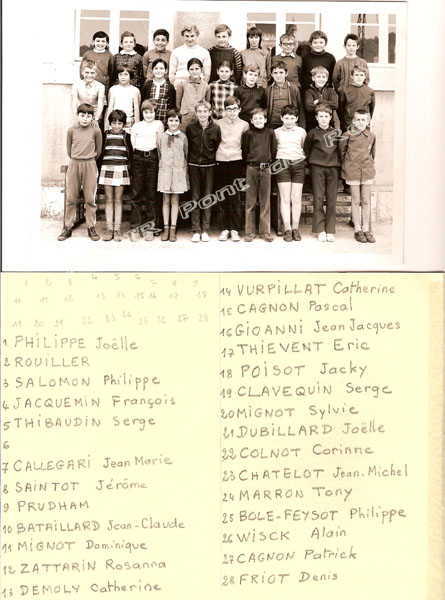 R Pont de R
1 2 3 4 5 6 7 8 9
10 11 12 13 14 15 16 17 18
19 20 21 22 23 24 25 26 27 28
1 PHILIPPE Joëlle
2 ROUILLER
3 SALOMON Philippe
4 JACQUEMIN François
5 THIBAUDIN Serge
6
7 CALLEGARI Jean Marie
8 SAINTOT Jérôme
9 PRUDHAM
10 BATAILLARD Jean-Claude
11 MIGNOT Dominique
12 ZATTARIN Rosanna
13 DEMOLY Catherine
14 VURPILLAT Catherine
15 CAGNON Pascal
16 GIOANNI Jean Jacques
17 THIEVENT Eric
18 POISOT Jacky
19 CLAVEQUIN Serge
20 MIGNOT Sylvie
21 DUBILLARD Joëlle
22 COLNOT Corinne
23 CHATELOT Jean-Michel
24 MARRON Tony
25 BOLE-FEYSOT Philippe
26 WISCK Alain
27 CAGNON Patrick
28 FRIOT Denis